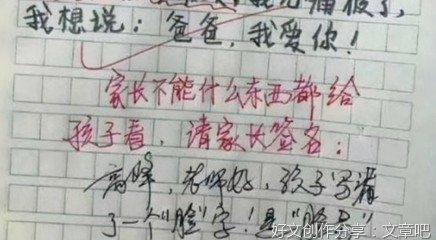 我想说:爸爸,我爱你!
家长不能什么东西都给
孩子看,请家长签名:
高峰,老师好,孩子写漏
了一个"脸"字!是"脸
好文创作分享:文章吧